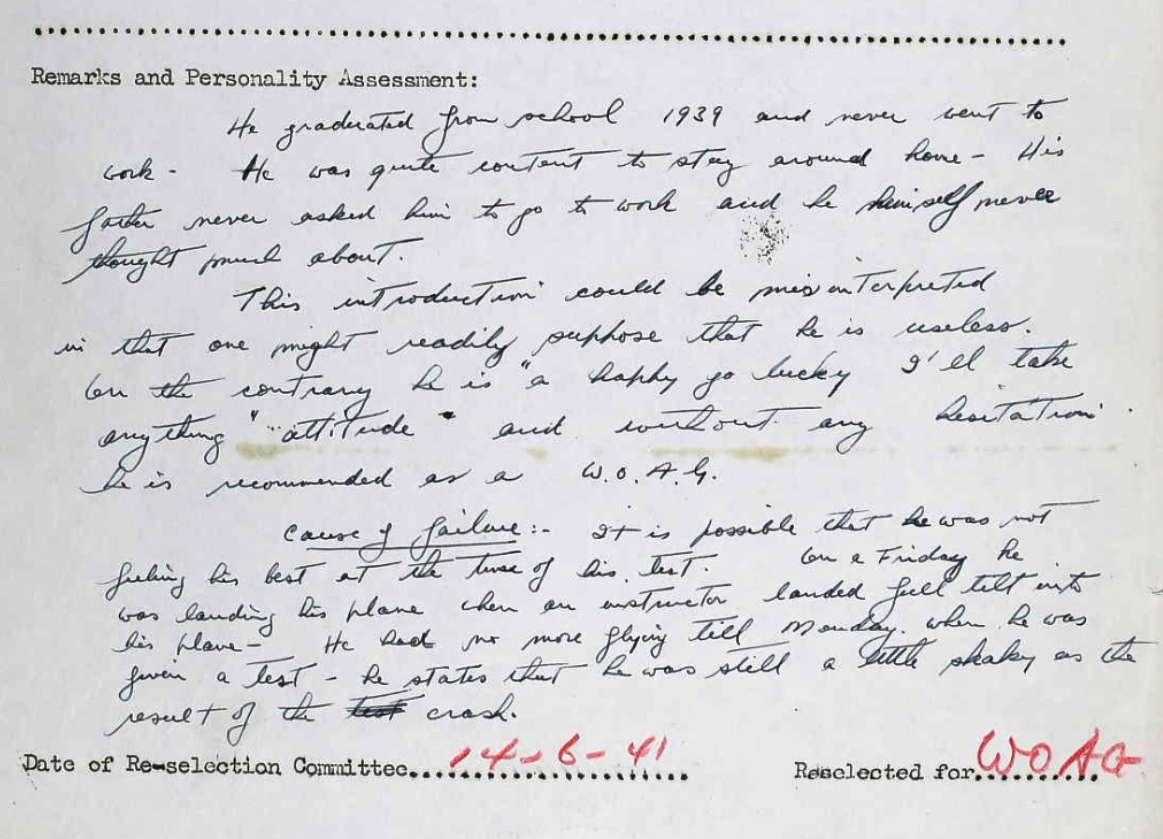 Remarks and Personality Assessment:
He graduated from school 1939 and never went to
work - He was quite content to stay around home - His
father never asked him to go to work and he himself never
thought much about.
This introduction could be misinterpreted
in that one might readily supphose that he is useless.
On the contrary he is "a happy go lucky I'll take
anything" "attitude" and without any hesitation
he is recommended as a W.O.A.G.
Cause of failure:- It is possible that he was not
feeling his best at the time of his test. On a Friday he
was landing his plane when an instructor landed full tilt into
his plane - He had no more flying till Monday. when he was
given a test - he states that he was still a little shaky as the
result of the test crash.
Date of Re-selection Committee...14-6-41
Reselected for...WOAG